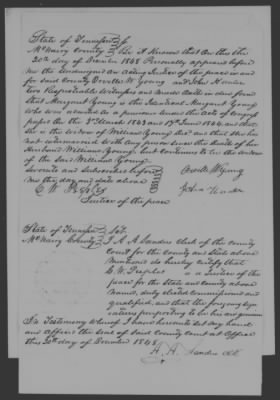 State of Tennessee
McNairy County Be it Known that on this the
30th day of December 1848 Personally appeared before
me the undersigned an acting Justice of the peace in and
for said County Orville W Young and John
two Respectable Witnesses and made oath in due form
that Margaret Young is the Identical Margaret Young
who was a pensioner under the acts of Congress
passed the 3rd March 1843 and 17th June 1844 and that
she is the widow of William Young Decd and that she has
not intermarried with any person since the death of her
Husband William Young but continues to be the widow
of the said William Young
Sworn to and Subscribed before
me the day and date above
Orville W Young
John
C. W. Peoples
Justice of the peace
State of Tennessee Sct.
McNairy County I A. A. Sanders Clerk of the County
Court for the county and State above
mentioned do hereby certify that
C. W. Peoples is a Justice of the
peace for the State and county above
named, duly elected commissioned and
qualified, and that the foregoing
signatures purporting to be his are genuine
In Testimony whereof I have hereunto set my hand
and affixed the seal of said county court at Office
this 30th day of December 1848
A. A. Sanders Clk